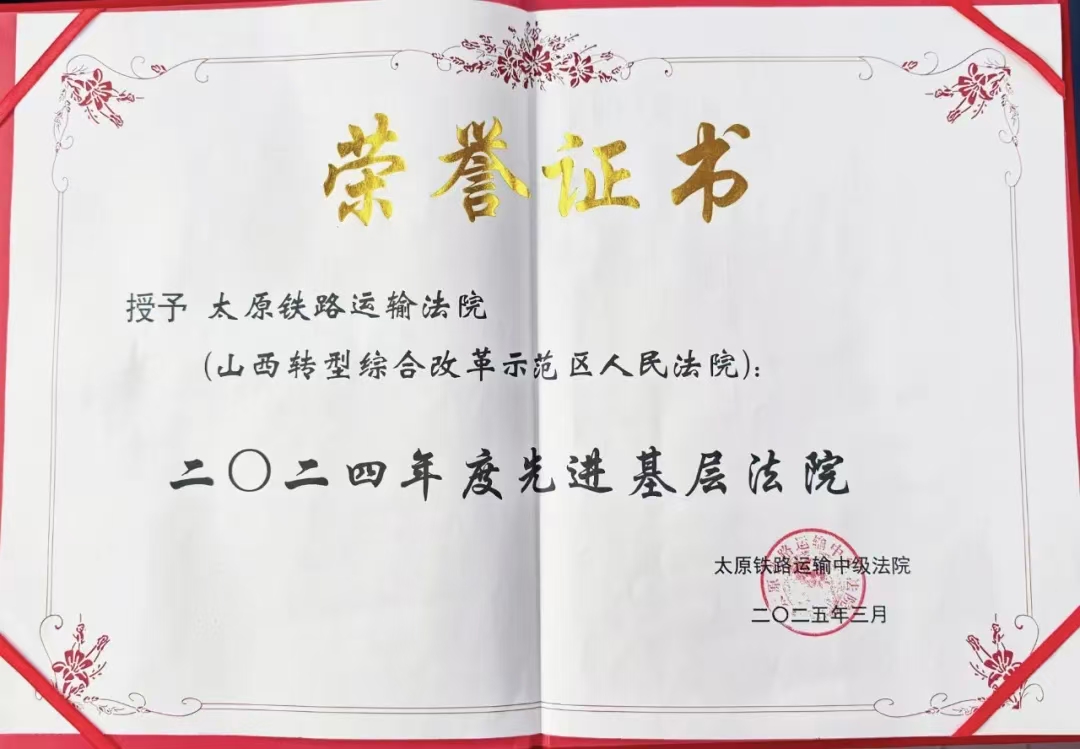 荣誉证书
授予 太原铁路运输法院
(山西转型综合改革示范区人民法院):
二〇二四年度先进基层法院
太原铁路运输中级法院
二〇二五年三月